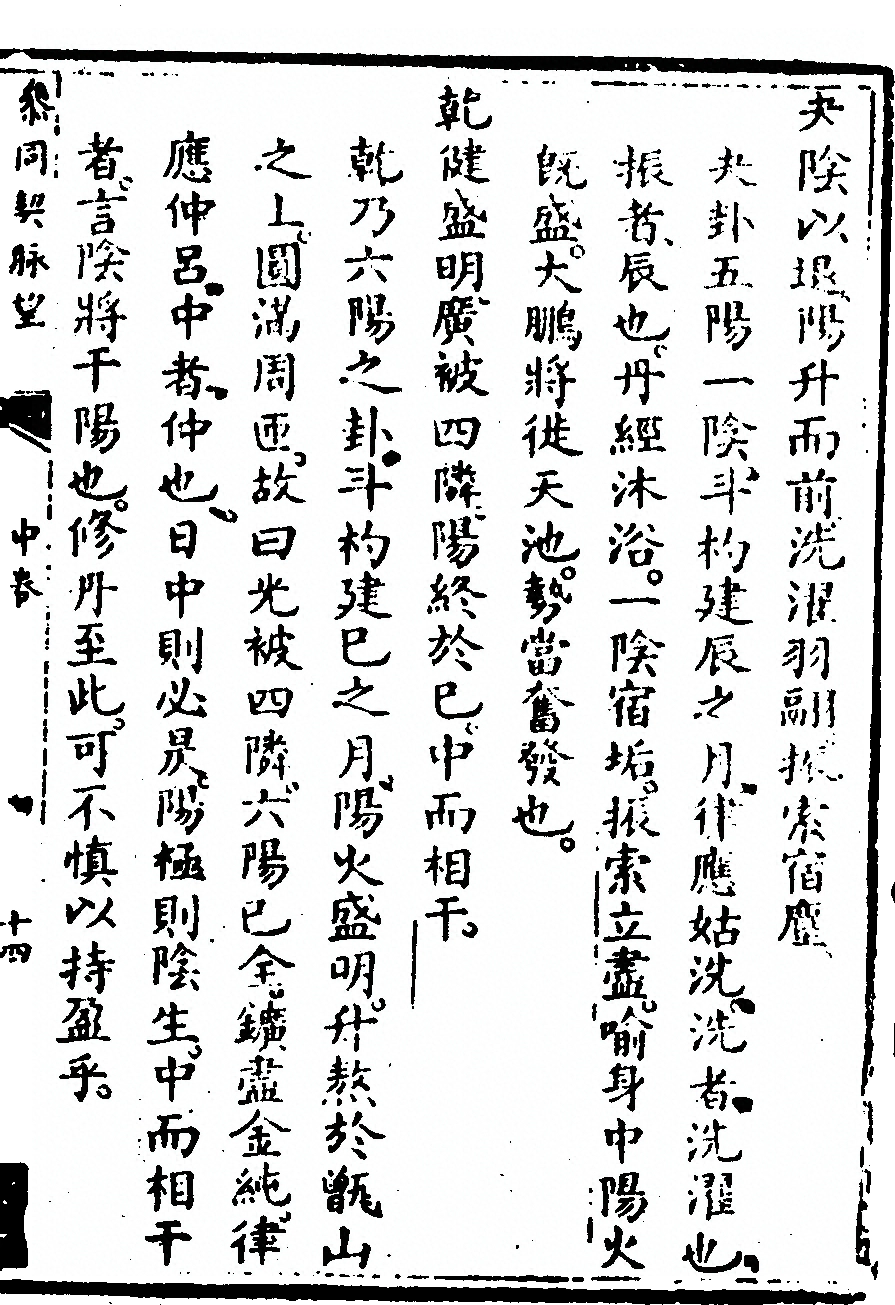 夬陰以退。陽升而前。洗濯羽翮。振索宿塵。
夬卦五陽一陰。斗杓建辰之月。律應姑洗。洗者。洗濯也。
振者、辰也。丹經沐浴。一陰宿垢。振索立盡。喻身中陽火
既盛。大鵬將徙天池。勢當奮發也。
乾健盛明。廣被四隣。陽終於巳。中而相干。
乾乃六陽之卦。斗杓建巳之月。陽火盛明。升熬於甑山
之上。圓滿周匝。故曰光被四隣。六陽已全。鑛盡金純。律
應仲呂。中者。仲也。日中則必昃。陽極則陰生。中而相干
者。言陰將干陽也。修丹至此。可不慎以持盈乎。
叅同契脉望
中卷
十四